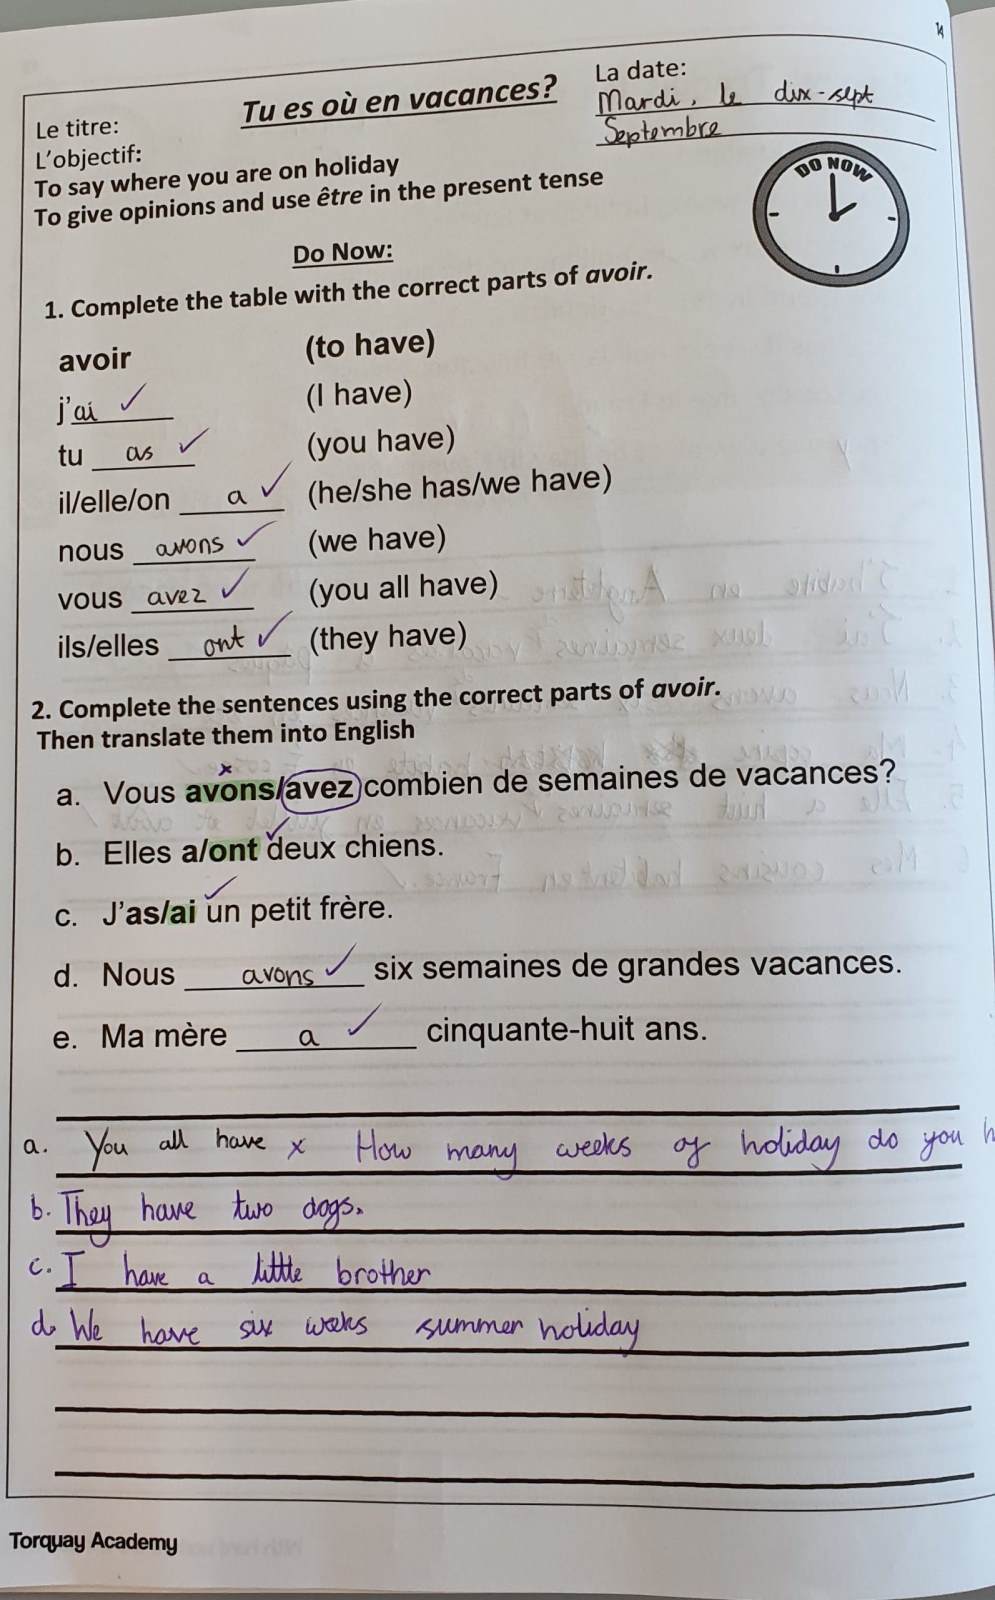 14
La date:
Le titre: Tu es où en vacances? Mardi, le dix-sept
Septembre
L'objectif:
To say where you are on holiday
To give opinions and use être in the present tense
DO NOW
Do Now:
1. Complete the table with the correct parts of avoir.
avoir (to have)
j'ai ✓ (I have)
tu as ✓ (you have)
il/elle/on a ✓ (he/she has/we have)
nous avons ✓ (we have)
vous avez ✓ (you all have)
ils/elles ont ✓ (they have)
2. Complete the sentences using the correct parts of avoir.
Then translate them into English
a. Vous avons/avez combien de semaines de vacances?
b. Elles a/ont deux chiens.
c. J'as/ai un petit frère.
d. Nous avons ✓ six semaines de grandes vacances.
e. Ma mère a ✓ cinquante-huit ans.
a. You all have x How many weeks of holiday do you h
b. They have two dogs.
c. I have a little brother
d. We have six weeks summer holiday
Torquay Academy